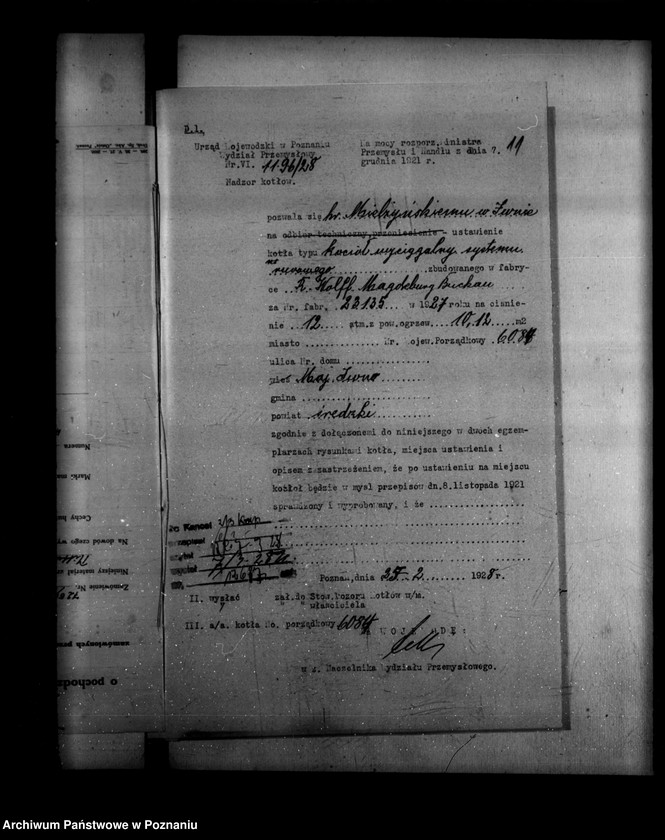 D.1.
11
Urząd Wojewodzki w Poznaniu
Wydział Przemysłowy
Nr.VI. 1196/28
Nadzor kotłow.
Na mocy rozporz.Ministra
Przemysłu i Handlu z dnia 7.
grudnia 1921 r.
pozwala się hr. Mielżyńskiemu w Iwnie
na odbiór techniczny przeniesienie - ustawienie
kotła typu kocioł wyciągalny systemu
rurowego zbudowanego w fabry-
ce R. Wolff Magdeburg Buckau
za Nr. fabr. 22135 w 1927 roku na ciśnie-
nie 12 atm.z pow.ogrzew. 10,12 m2
miasto Nr. Wojew.Porządkowy 6084
ulica Nr. domu
wieś Maj. Iwno
gmina
powiat średzki
zgodnie z dołączonemi do niniejszego w dwoch egzem-
plarzach rysunkami kotła, miejsca ustawienia i
opisem z zastrzeżeniem, że po ustawieniu na miejscu
kobłoł będzie w mysl przepisów dn.8.listopada 1921
sprawdzony i wyprobowany, i że
Do Kancel.
Poznań,dnia 25-2 1928r.
II. wysłać zał.do Stow.Dozoru Kotłów w/m.
" " właściciela
III. a/a. kotła No. porządkowy 6084
WOJEWODĘ:
w z. Naczelnika Wydziału Przemysłowego.
Numera
Marki
Cechy
Na dowód czego
Niniejszy materjał
Zamówienie Nr.
zamówionych przez
o pochodz
Archiwum Państwowe w Poznaniu